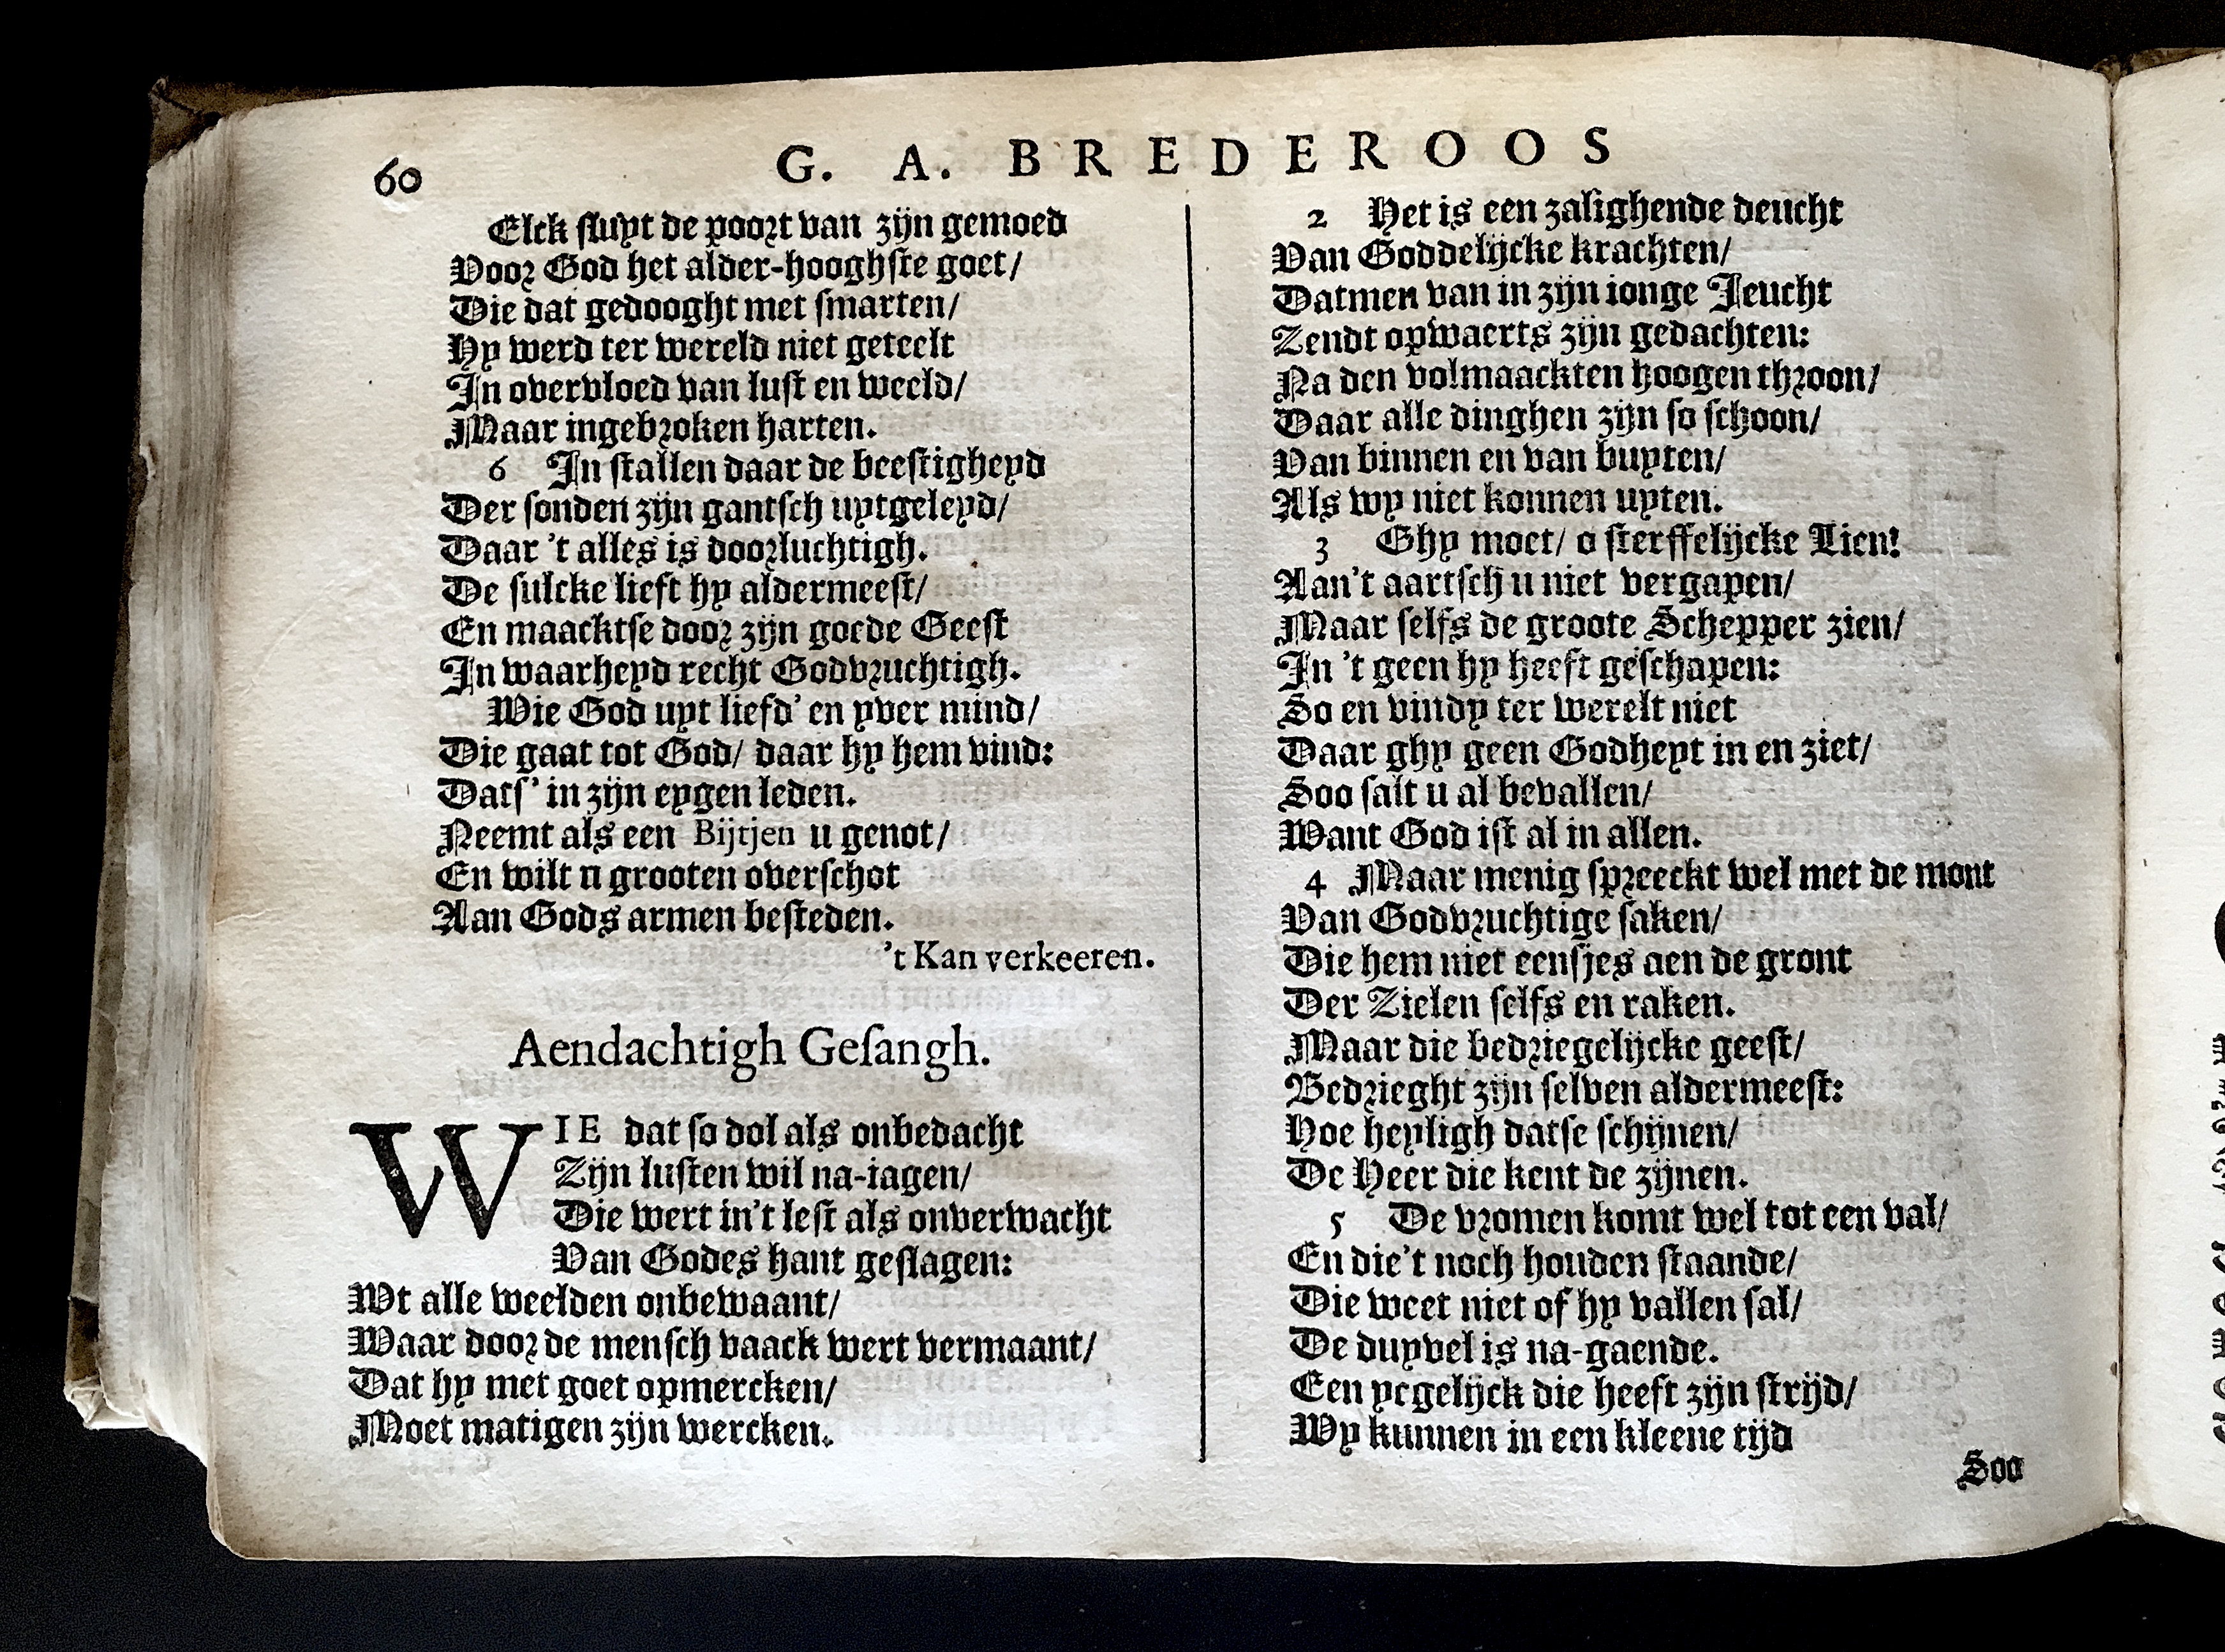 60
G. A. BREDEROOS
Elck sluyt de poort van zijn gemoed
Voor God het alder-hooghste goet/
Die dat gedooght met smarten/
Hy werd ter wereld niet geteelt
In overvloed van lust en weeld/
Maar ingebroken harten.
6 In stallen daar de beestigheyd
Der sonden zijn gantsch uytgeleyd/
Daar 't alles is doorluchtigh.
De sulcke lieft hy aldermeest/
En maacktse door zijn goede Geest
In waarheyd recht Godvruchtigh.
Wie God uyt liefd' en yver mind/
Die gaat tot God/ daar hy hem vind:
Dats' in zijn eygen leden.
Neemt als een Bijtjen u genot/
En wilt u grooten overschot
Aan Gods armen besteden.
't Kan verkeeren.
Aendachtigh Gesangh.
WIE dat so dol als onbedacht
Zijn lusten wil na-iagen/
Die wert in't lest als onverwacht
Van Godes hant geslagen:
Wt alle weelden onbewaant/
Waar door de mensch vaack wert vermaant/
Dat hy met goet opmercken/
Moet matigen zijn wercken.
2 Het is een zalighende deucht
Van Goddelijcke krachten/
Datmen van in zijn ionge Jeucht
Zendt opwaerts zijn gedachten:
Na den volmaackten hoogen throon/
Daar alle dinghen zijn so schoon/
Van binnen en van buyten/
Als wy niet konnen uyten.
3 Ghy moet/ o sterffelijcke Lien!
Aan't aartsch u niet vergapen/
Maar selfs de groote Schepper zien/
In 't geen hy heeft geschapen:
So en vindy ter werelt niet
Daar ghy geen Godheyt in en ziet/
Soo salt u al bevallen/
Want God ist al in allen.
4 Maar menig spreeckt wel met de mont
Van Godvruchtige saken/
Die hem niet eensjes aen de gront
Der Zielen selfs en raken.
Maar die bedriegelijcke geest/
Bedrieght zijn selven aldermeest:
Hoe heyligh datse schijnen/
De Heer die kent de zijnen.
5 De vromen komt wel tot een val/
En die't noch houden staande/
Die weet niet of hy vallen sal/
De duyvel is na-gaende.
Een yegelijck die heeft zijn strijd/
Wy kunnen in een kleene tijd
Soo